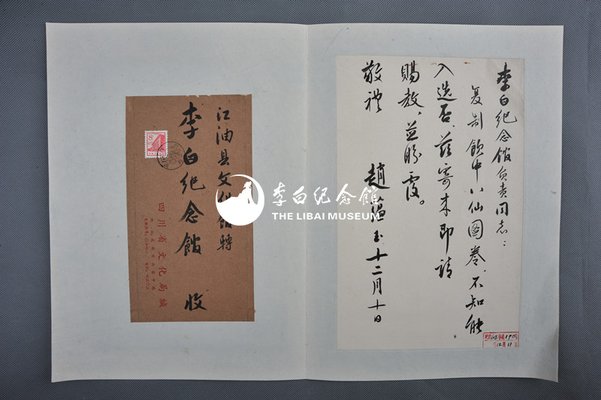 李白纪念馆负责同志：
复制饮中八仙图卷，不知能
入选否，兹寄来即请
赐教，并盼覆。
敬礼
赵蕴玉十二月十日
江油县文化馆转
李白纪念馆 收
四川省文化局缄
李白纪念馆
THE LIBAI MUSEUM